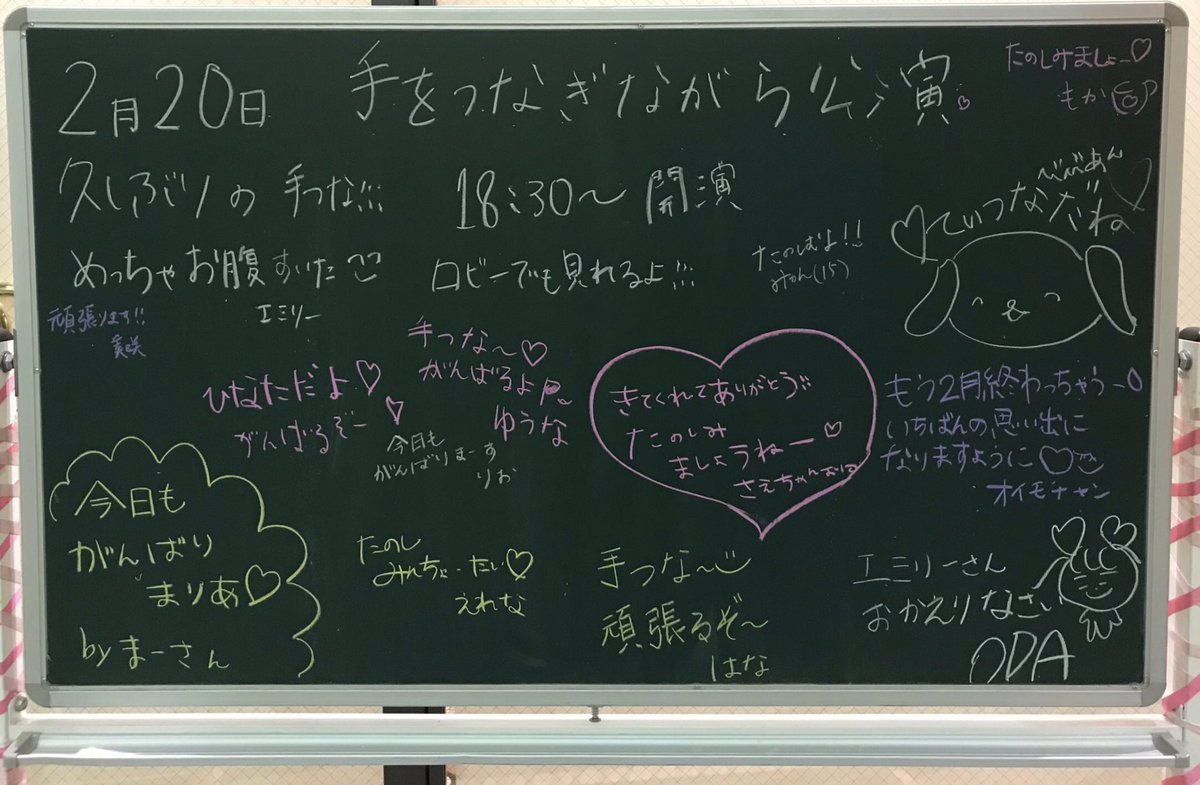 2月20日 手をつなぎながら公演
たのしみましょー♡
もか
久しぶりの 手つな!!!
18:30〜 開演
びぶあん
♡てぃつなだね
めっちゃお腹すいた
エミリー
ロビーでも見れるよ!!!
たのしむよ!!
みかん(15)
頑張ります!!
美咲
ひなただよ♡
がんばるぞー
手つな〜♡
がんばるよ
ゆうな
今日も
がんばりまーす
りお
きてくれてありがとう
たのしみ
ましょうねー♡
さえちゃん
もう2月終わっちゃうー
いちばんの思い出に
なりますように♡
オイモチャン
今日も
がんばり
まりあ♡
byまーさん
たのし
みんちに・たい♡
えれな
手つな〜
頑張るぞ〜
はな
エミリーさん
おかえりなさい
ODA